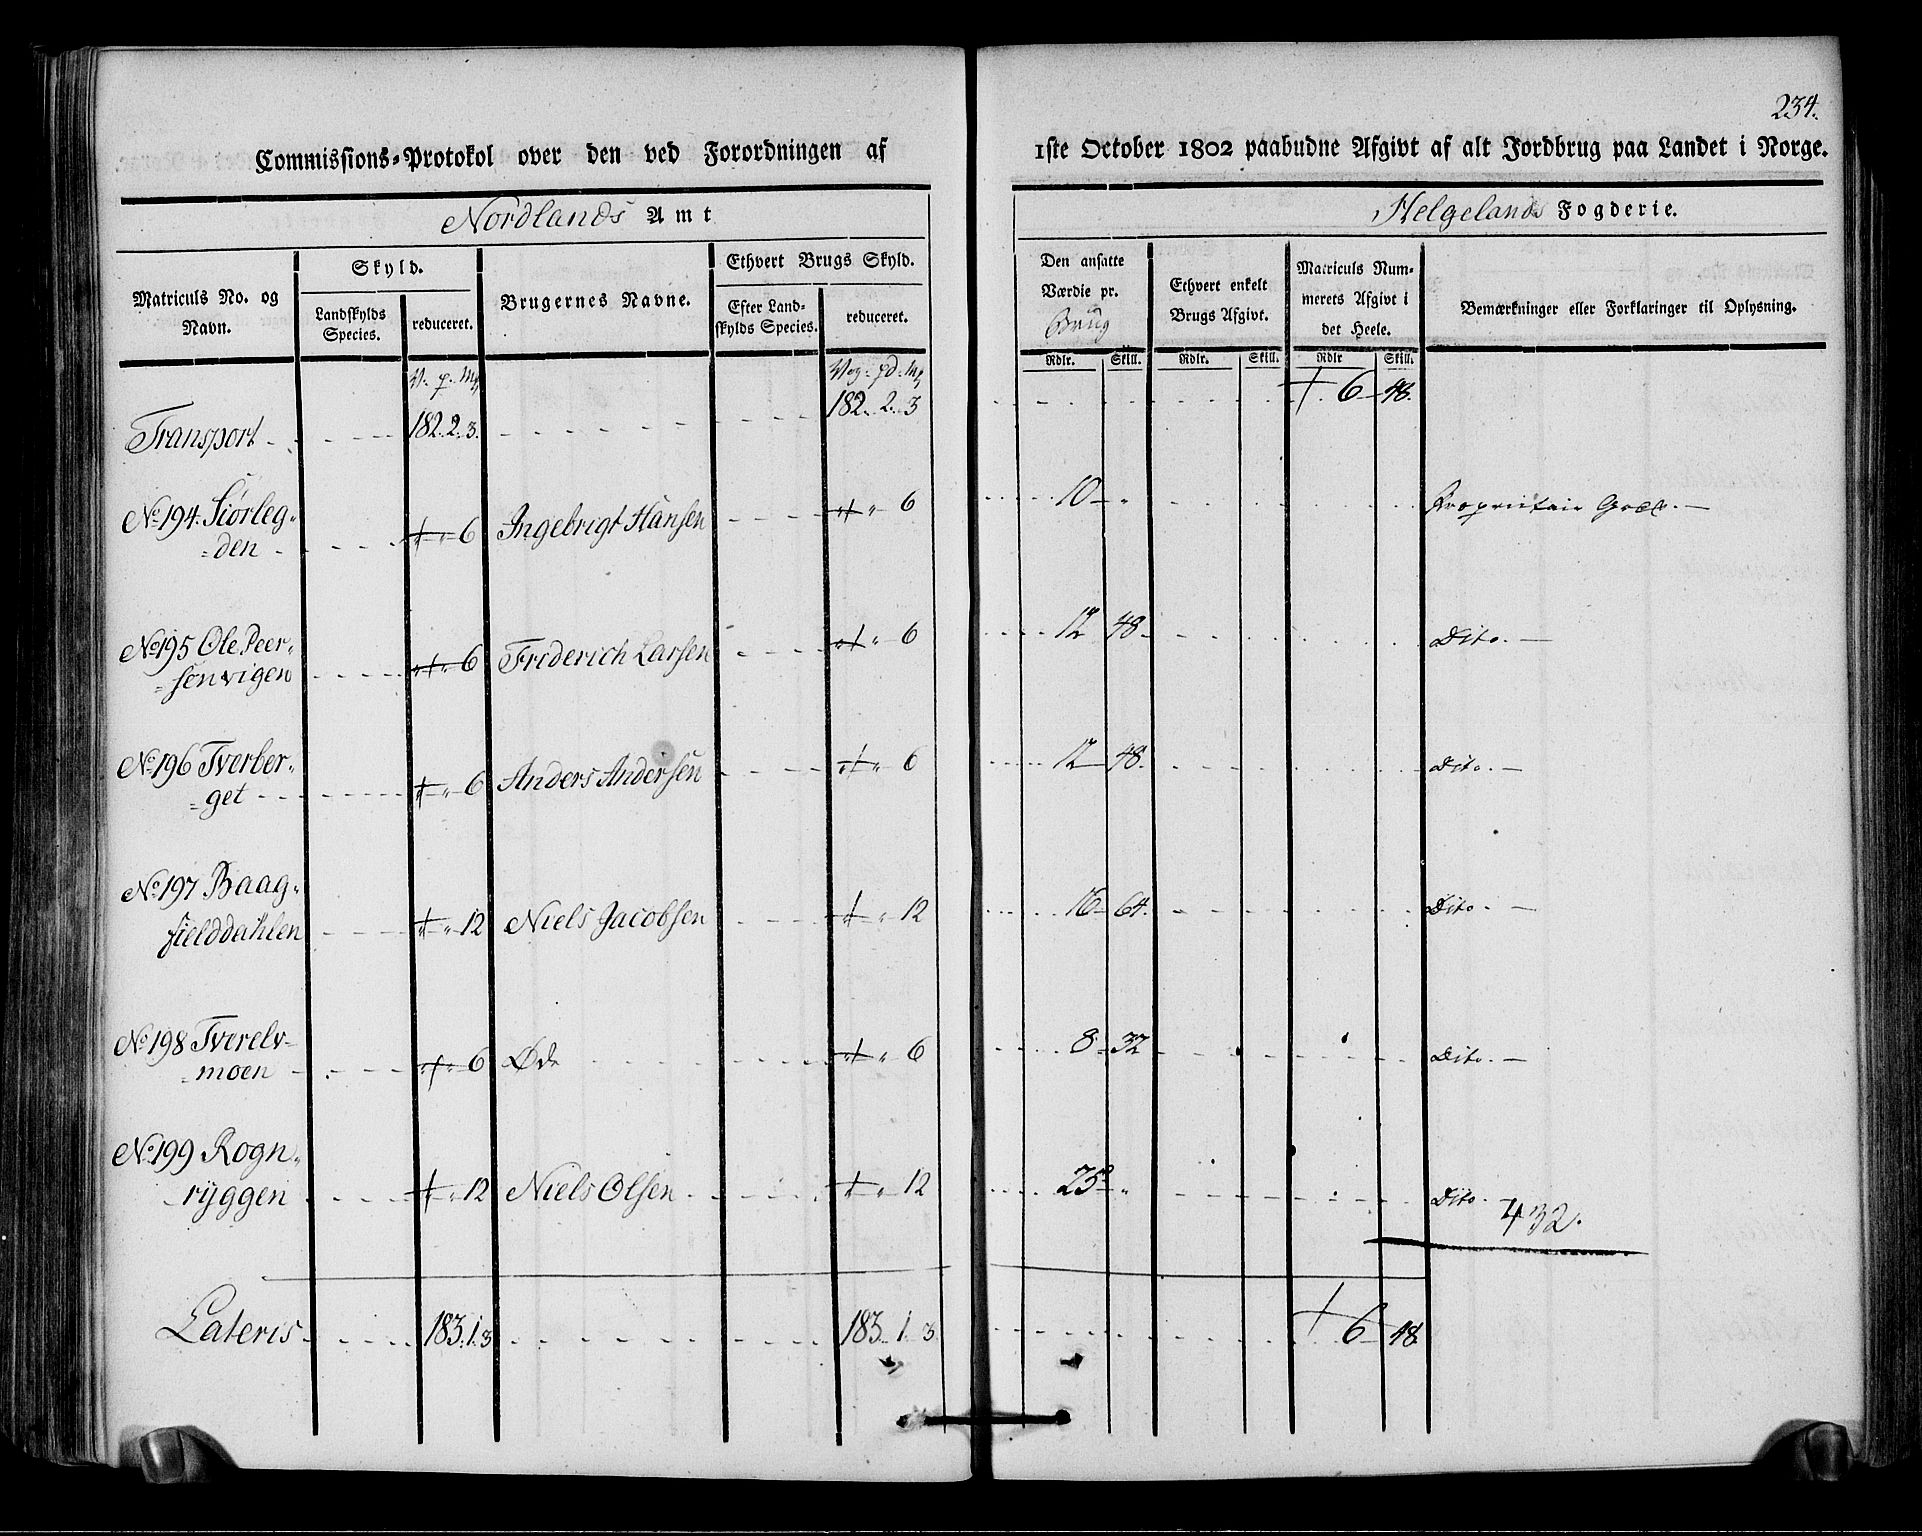 234.
Commissions-Protokol over den ved Forordningen af 1ste October 1802 paabudne Afgivt af alt Jordbrug paa Landet i Norge.
Nordlands Amt
Helgelands Fogderie.
Matriculs No. og Navn.
Skyld.
Landskylds Species.
reduceret.
Brugernes Navne.
Ethvert Brugs Skyld.
Efter Landskylds Species.
reduceret.
Den ansatte Værdie pr. Brug
Rdlr. Skill.
Ethvert enkelt Brugs Afgivt.
Rdlr. Skill.
Matriculs Nummerets Afgivt i det Heele.
Rdlr Skill.
Bemærkninger eller Forklaringer til Oplysning.
Transport 182. 2. 3. 182. 2. 3 6 48.
No 194. Siørleg-
den 6 Ingebrigt Hansen 6 10 Proprietair Godz.
No 195 Ole Peer-
senvigen 6 Friderich Larsen 6 12 48 Dito.
No 196 Tverber-
get 6 Anders Andersen 6 12 48. Dito.
No 197 Baag-
fielddahlen 12 Niels Jacobsen 12 16 64. Dito.
No 198 Tverelv-
moen 6 Øde 6 8 32 Dito.
No 199 Rogn-
ryggen 12 Niels Olsen 12 25 Dito.
432.
Lateris 183. 1. 3 183. 1. 3 6 48